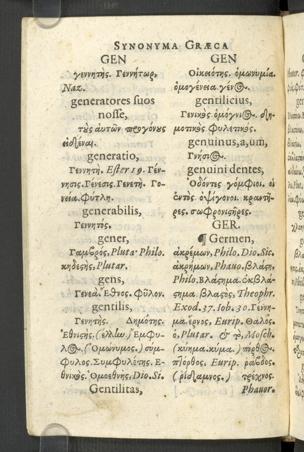 SYNONYMA GRÆCA
GEN
γεννητής. Γεννήτωρ,
Naz.
generatores suos
nosse,
τοὺς αὐτῶν προγόνους
εἰδέναι.
generatio,
Γέννησις. Γένεσις. Γενετή. Γο-
νεία. Φύτλη.
generabilis,
Γεννητός.
gener,
Γαμβρός. Plutar. Philo.
κηδεστής. Plutar.
gens,
Γενεά. Ἔθνος. Φῦλον.
gentilis,
Γενήτης. Δημότης.
Ἐθνικός. Ἔμφυ-
λος. (Ὁμώνυμος.) σύμ-
φυλος. Συμφυλέτης. Ἐ-
θνικός. Ὁμοεθνής. Dio. Si.
Gentilitas,
GEN
Οἰκειότης. ὁμωνυμία.
ὁμογένεια. γένος.
gentilicius,
Γενικός. ὁμόγνιος. δη-
μοτικός. φυλετικός.
genuinus, a, um,
Γνήσιος.
genuini dentes,
Ὀδόντες γόμφιοι. οἱ
ἐντὸς ὀψίγονοι. κραντῆ-
ρες. σωφρονιστῆρες.
GER.
¶ Germen,
ἀκρέμων, Philo. Dio. Sic.
Philo. Βλάστημα. ἐκβλά-
στημα. βλαστός. Theophr.
Exod. 37. Iob. 30. Γέννη-
μα. ἔρνος. Eurip. Θαλλός.
Plutar.
(κύημα. κύμα.) πτόρθος.
Eurip. ῥάβδος.
Phavor.